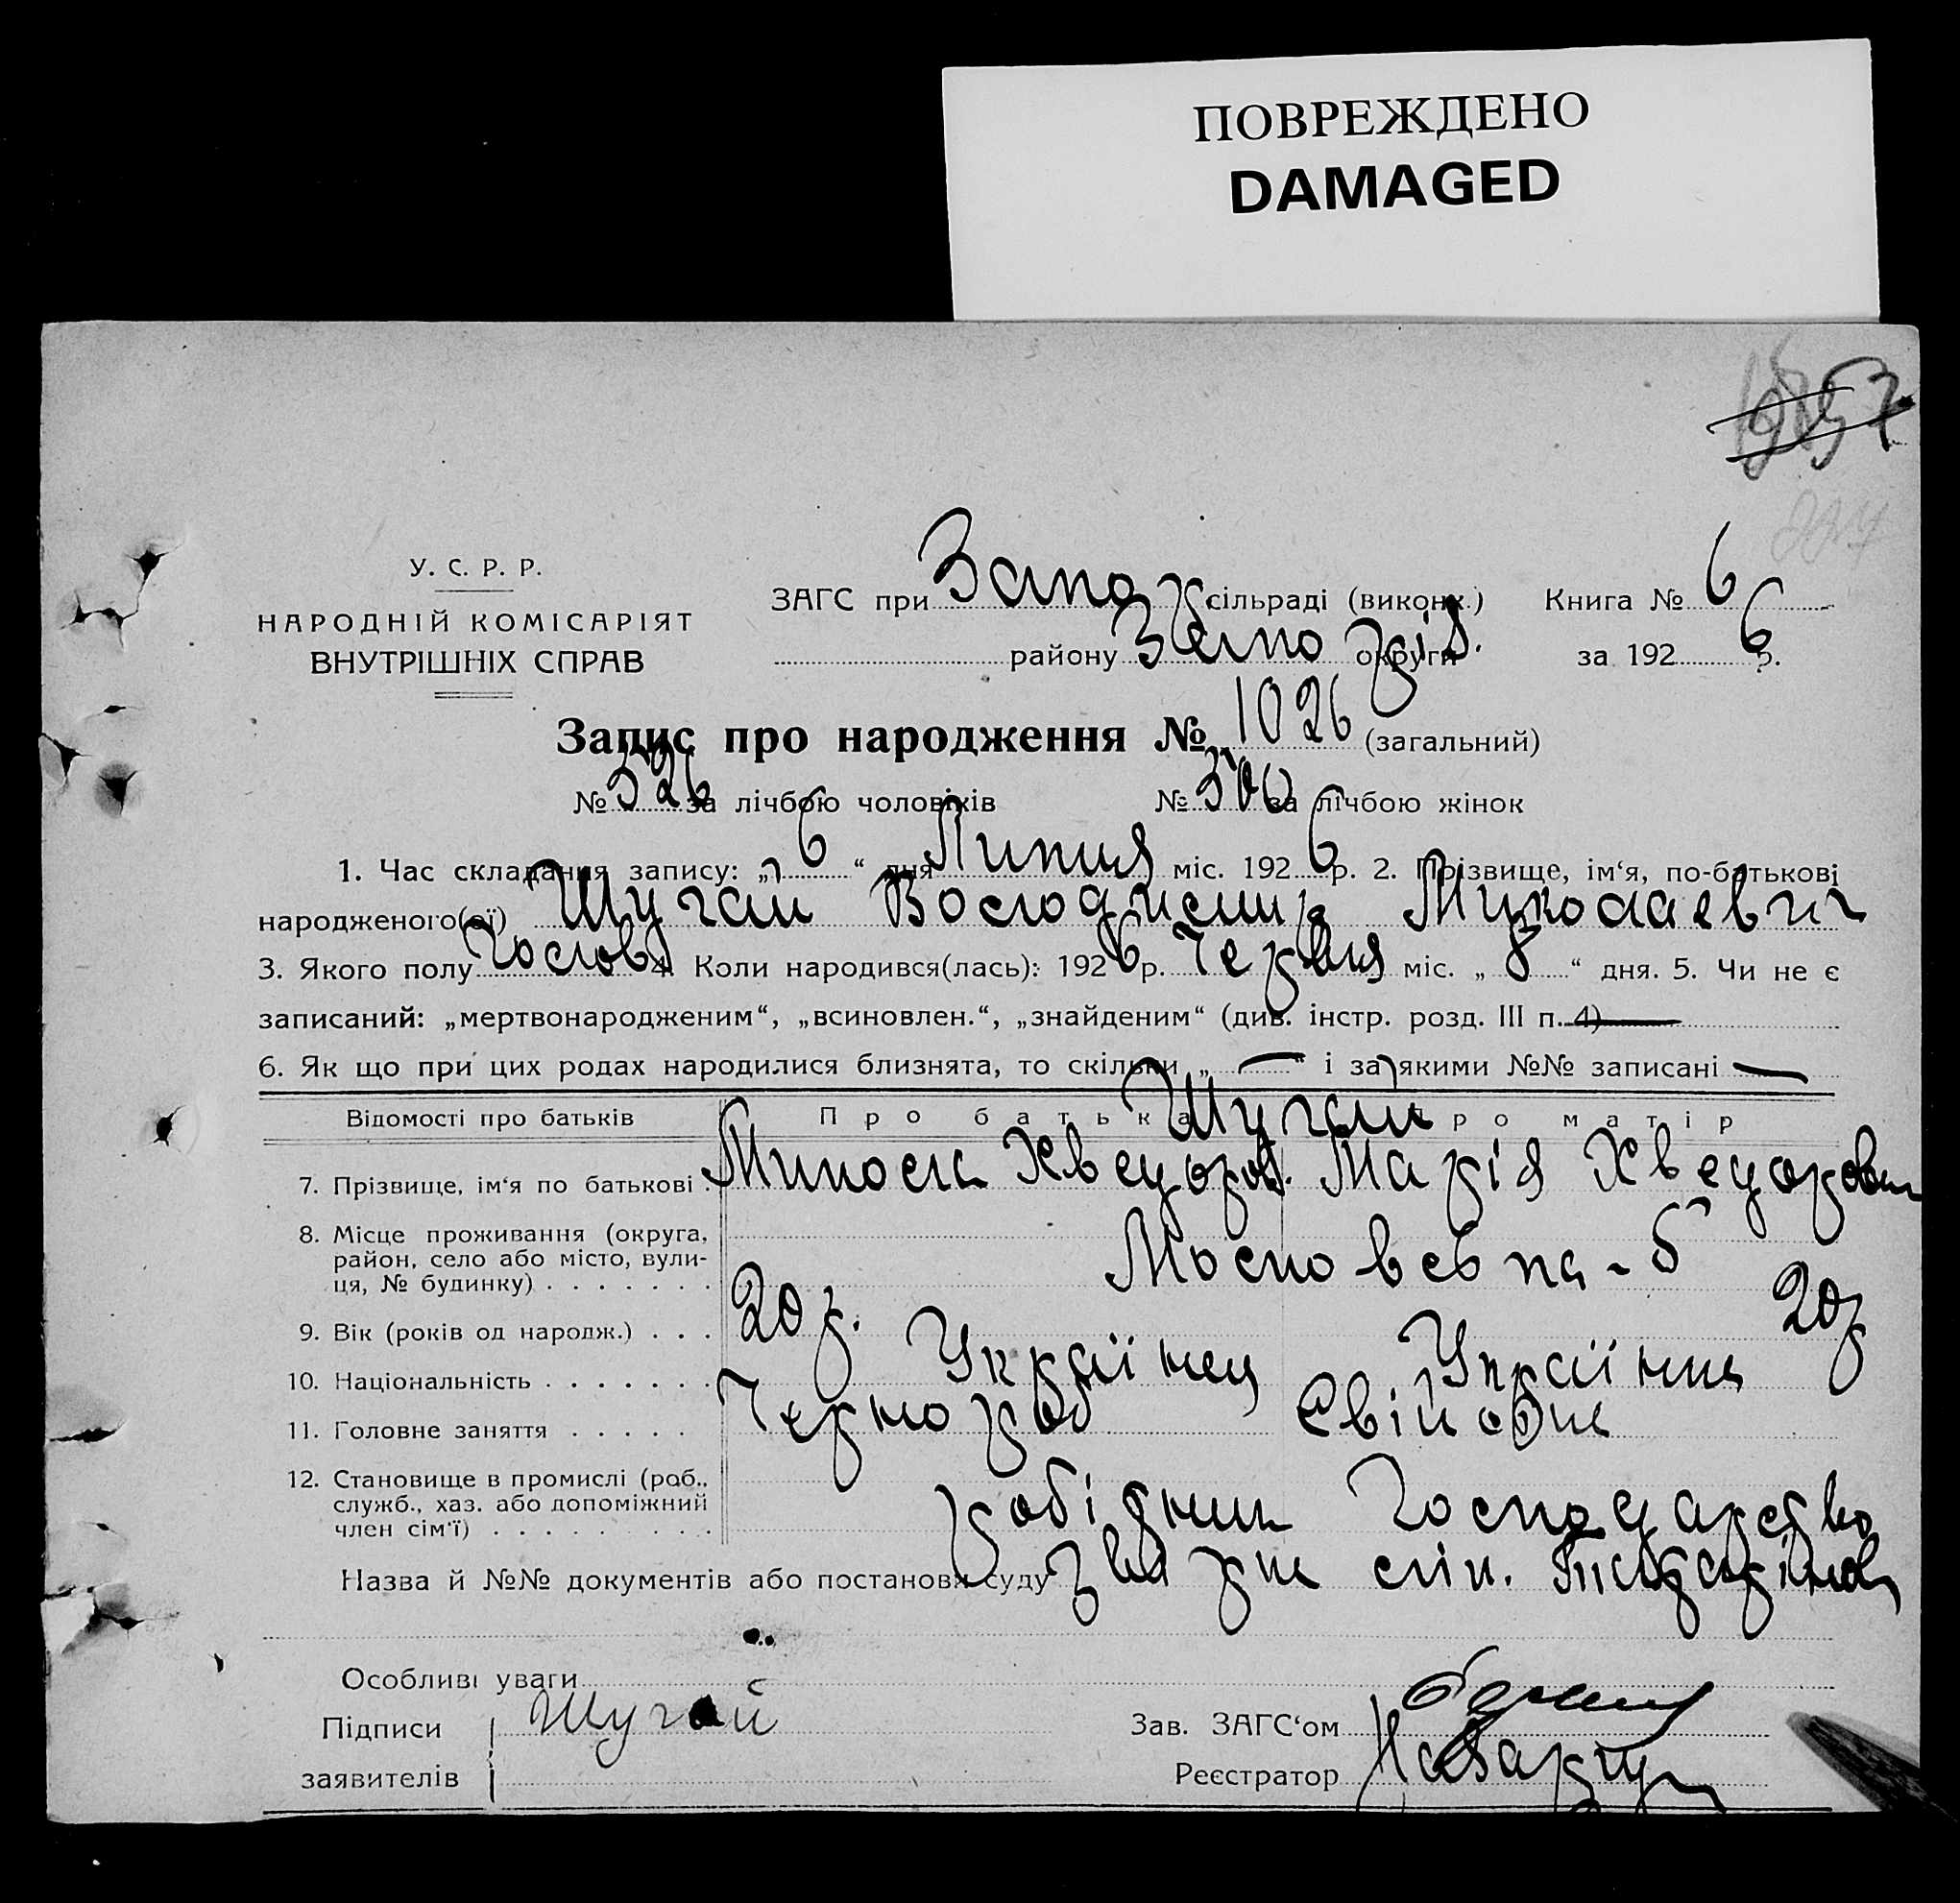 ПОВРЕЖДЕНО
DAMAGED
У. С. Р. Р.
НАРОДНІЙ КОМІСАРІЯТ
ВНУТРІШНІХ СПРАВ
ЗАГС при Запор сільраді (виконк.) Книга № 6
району Запоріз. округи за 1926 р.
Запис про народження № 1026 (загальний)
№ 526 за лічбою чоловіків № 500 за лічбою жінок
1. Час складання запису: „ 6 “ дня Липня міс. 1926 р. 2. Прізвище, ім‘я, по-батькові
народженого(ої) Шугай Володимир Миколаевич
3. Якого полу Чолов 4. Коли народився(лась): 1926 р. Червня міс. „ 8 “ дня. 5. Чи не є
записаний: „мертвонародженим“, „всиновлен.“, „знайденим“ (див. інстр. розд. III п. 4)
6. Як що при цих родах народилися близнята, то скільки „ — “ і за якими №№ записані —
Відомості про батьків Про батька Про матір
Шугай
7. Прізвище, ім‘я по батькові . Микола Хведоров. Марія Хведоровн
8. Місце проживання (округа,
район, село або місто, вули-
ця, № будинку) . . . . . . . Московська - 5
9. Вік (років од народж.) . . . 20 р. 20 р
10. Національність . . . . . . . Українец Українка
11. Головне заняття . . . . . Чернороб
12. Становище в промислі (роб.,
служб., хаз. або допоміжний
член сім‘ї) . . . . . . . . . робідник Господарство
Назва й №№ документів або постанови суду
Особливі уваги
Підписи Шугай Зав. ЗАГС‘ом
заявителів Реєстратор